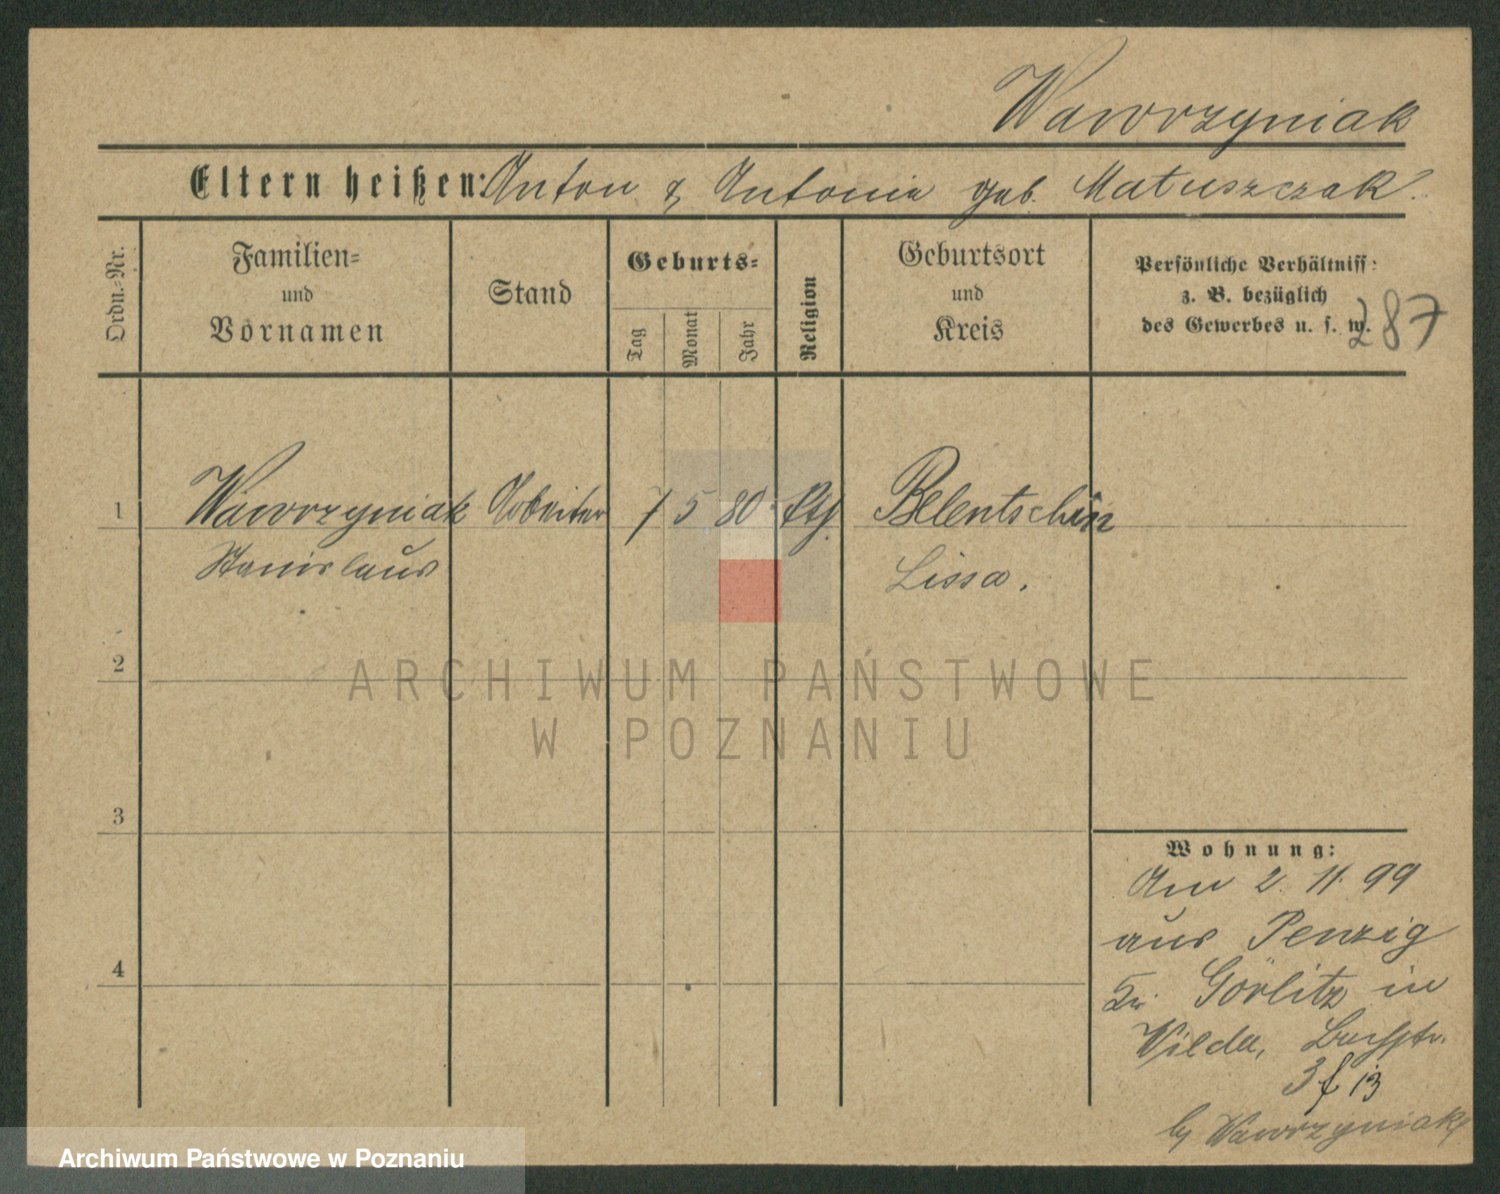 Wawrzyniak
Eltern heißen: Anton & Antonia geb. Matuszczak.
Ordn.-Nr.
Familien-
und
Vornamen
Stand
Geburts-
Tag
Monat
Jahr
Religion
Geburtsort
und
Kreis
Persönliche Verhältniss:
z. B. bezüglich
des Gewerbes u. s. w.
287
1 Wawrzyniak Arbeiter 7 5 80 kth. Belentschin
Stanislaus Lissa.
2
3
4
Wohnung:
Am 2. 11. 99
aus Penzig
Kr. Görlitz in
Wilda,
3 f 13
by Wawrzyniak
ARCHIWUM PAŃSTWOWE
W POZNANIU
Archiwum Państwowe w Poznaniu